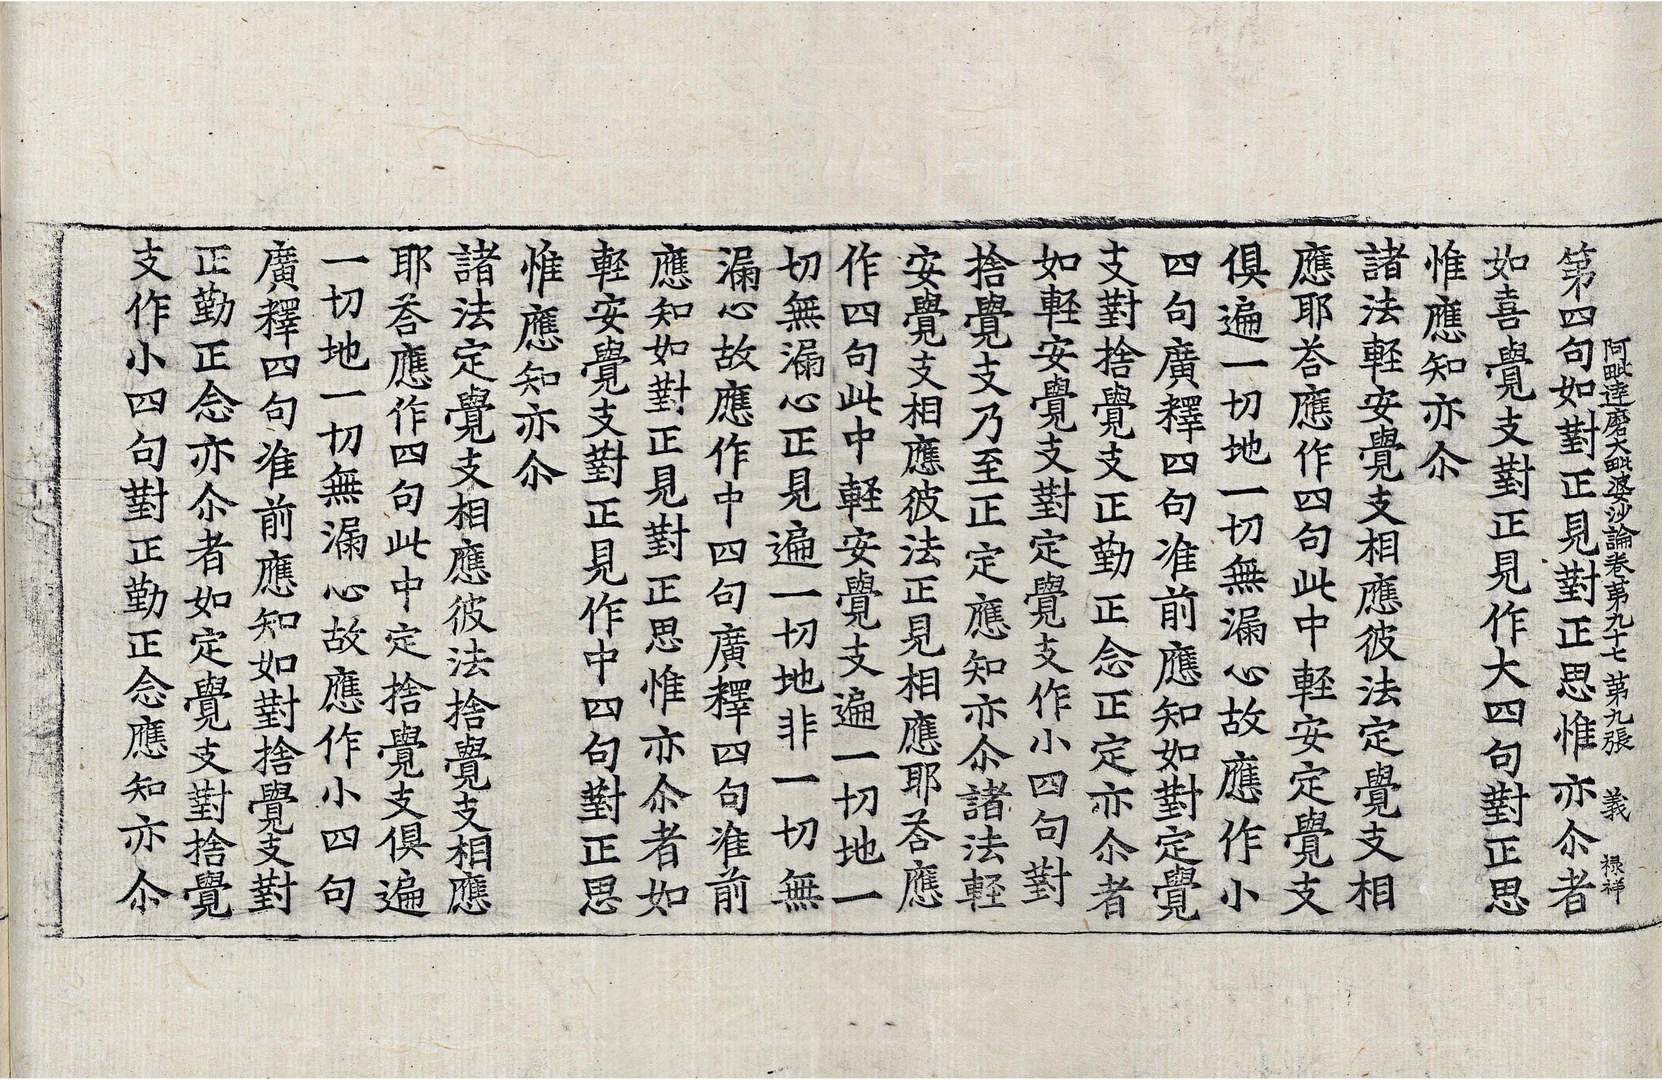 阿毗達磨大毗婆沙論卷苐九十七 苐九張 義 祿祥
第四句如對正見對正思惟亦尒者
如喜覺支對正見作大四句對正思
惟應知亦尒
諸法輕安覺支相應彼法定覺支相
應耶荅應作四句此中輕安定覺支
俱遍一切地一切無漏心故應作小
四句廣釋四句准前應知如對定覺
支對捨覺支正勤正念正定亦尒者
如輕安覺支對定覺支作小四句對
捨覺支乃至正定應知亦尒諸法輕
安覺支相應彼法正見相應耶荅應
作四句此中輕安覺支遍一切地一
切無漏心正見遍一切地非一切無
漏心故應作中四句廣釋四句准前
應知如對正見對正思惟亦尒者如
輕安覺支對正見作中四句對正思
惟應知亦尒
諸法定覺支相應彼法捨覺支相應
耶荅應作四句此中定捨覺支俱遍
一切地一切無漏心故應作小四句
廣釋四句准前應知如對捨覺支對
正勤正念亦尒者如定覺支對捨覺
支作小四句對正勤正念應知亦尒